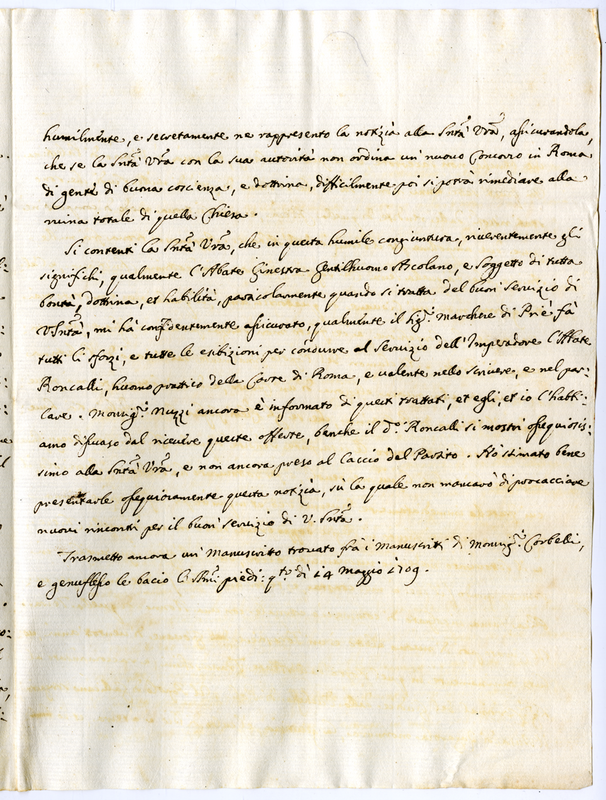 humilm.te, e secretamente ne rappresento la notizia alla Sn.tà Vrã, assicurandola,
che se la Sn.tà Vrã con la sua autorità non ordina un nuovo Concorso in Roma
di gente di buona coscienza, e dottrina, difficilmente poi si potrà rimediare alla
ruina totale di quella Chiesa.
Si contenti la Sn.tà Vrã, che in questa humile congiuntura, riverentemente gli
significhi, qualmente l'Abate Ginestra Gentilhuomo Ascolano, e Soggetto di tutta
bontà, dottrina, et habilità, particolarmente quando si tratta del buon servizio di
V. Sn.tà, mi hà confidentemente assicurato, qualmente il Sig.r marchese di Priè fà
tutti li sforzi, e tutte le esibizioni per condurre al Servizio dell'Imperadore l'Abbate
Roncalli, huomo prattico della Corte di Roma, e valente nello scrivere, e nel par-
lare. Monsig.r Nuzzi ancora è informato di questi trattati, et egli, et io l'habbi-
amo disuaso dal ricevere queste offerte, benche il d.o Roncalli si mostri ossequiosis-
simo alla Sn.tà Vrã, e non ancora preso al laccio del Partito. Hò stimato bene
presentarle ossequiosamente questa notizia, sù la quale non mancarò di procacciare
nuovi rincontri per il buon servizio di V. Sn.tà.
Trasmetto ancora un Manuscritto trovato frà i Manuscritti di Monsig.r Corbelli,
e genuflesso le bacio li Ss.mi piedi: q.to dì 14 Maggio 1709.